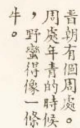 晋朝有個周處。
周處年青的時候
，野蠻得像一條
牛。